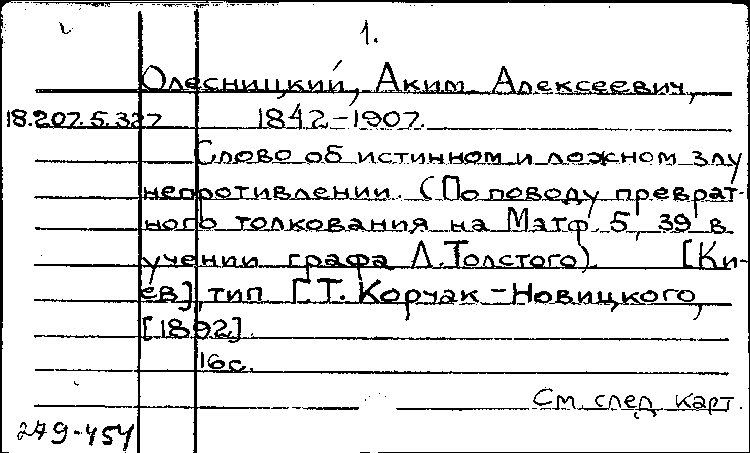 1.
Олесницкий, Аким Алексеевич,
18.207.5.327 1842-1907.
Слово об истинном и ложном злу
непротивлении. (По поводу преврат-
ного толкования на Матф 5, 39 в
учении графа Л.Толстого). [Ки-
ев], тип Г.Т. Корчак-Новицкого,
[1892].
16с.
См. след. карт.
279-454